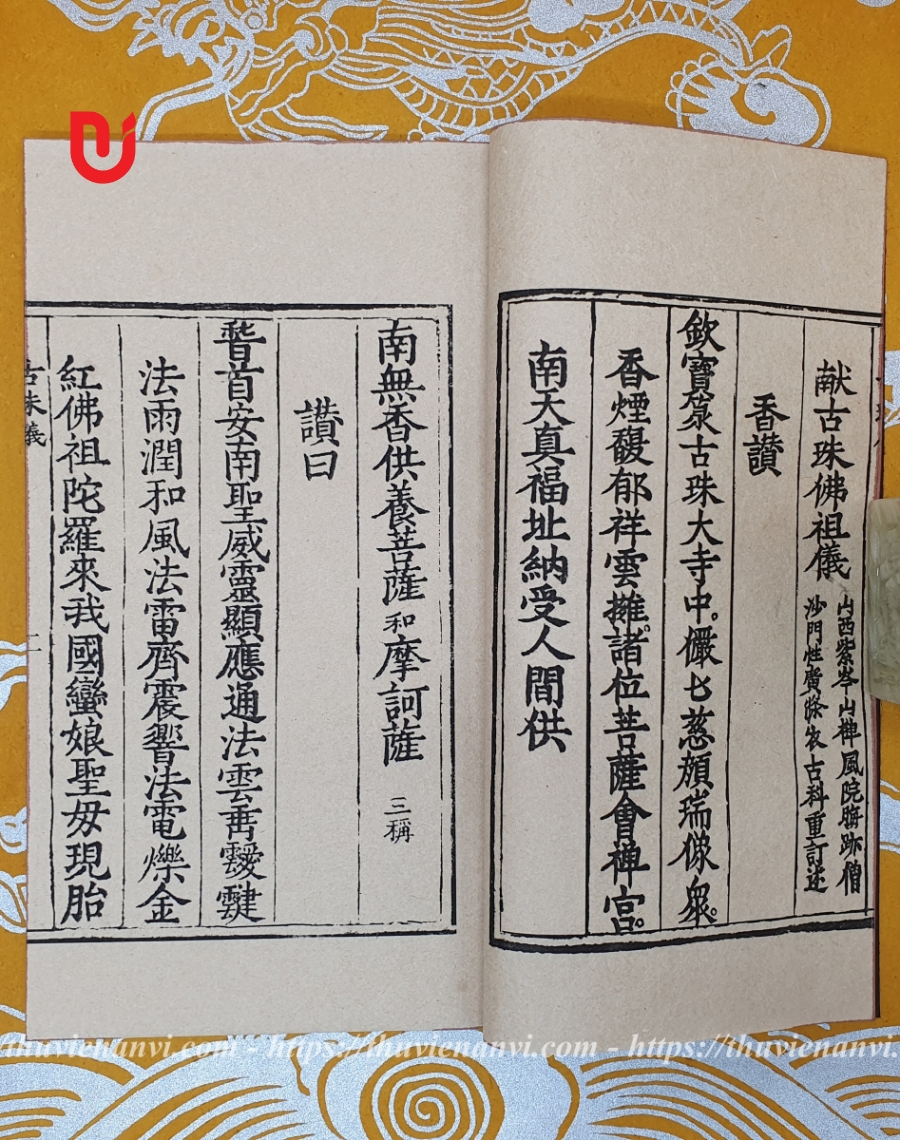 献古珠佛祖儀
山西紫岑山禅風院臍跡僧
沙門性廣條依古科重訂述
香讃
欽寶篆古珠大寺中。儼七慈顏瑞像衆。
香煙馥郁祥雲擁。諸位菩薩會禅宮。
南天真福址納受人間供
南無香供養菩薩和摩訶薩 三稱
讃曰
稽首安南聖威靈顯應通法雲冉靉靆
法雨潤和風法雷齊震響法電爍金
紅佛祖陀羅來我國蠻娘聖母現胎
古珠儀
二
thuvienanvi.com - https://thuvienanvi.com - https://thuvienanvi.